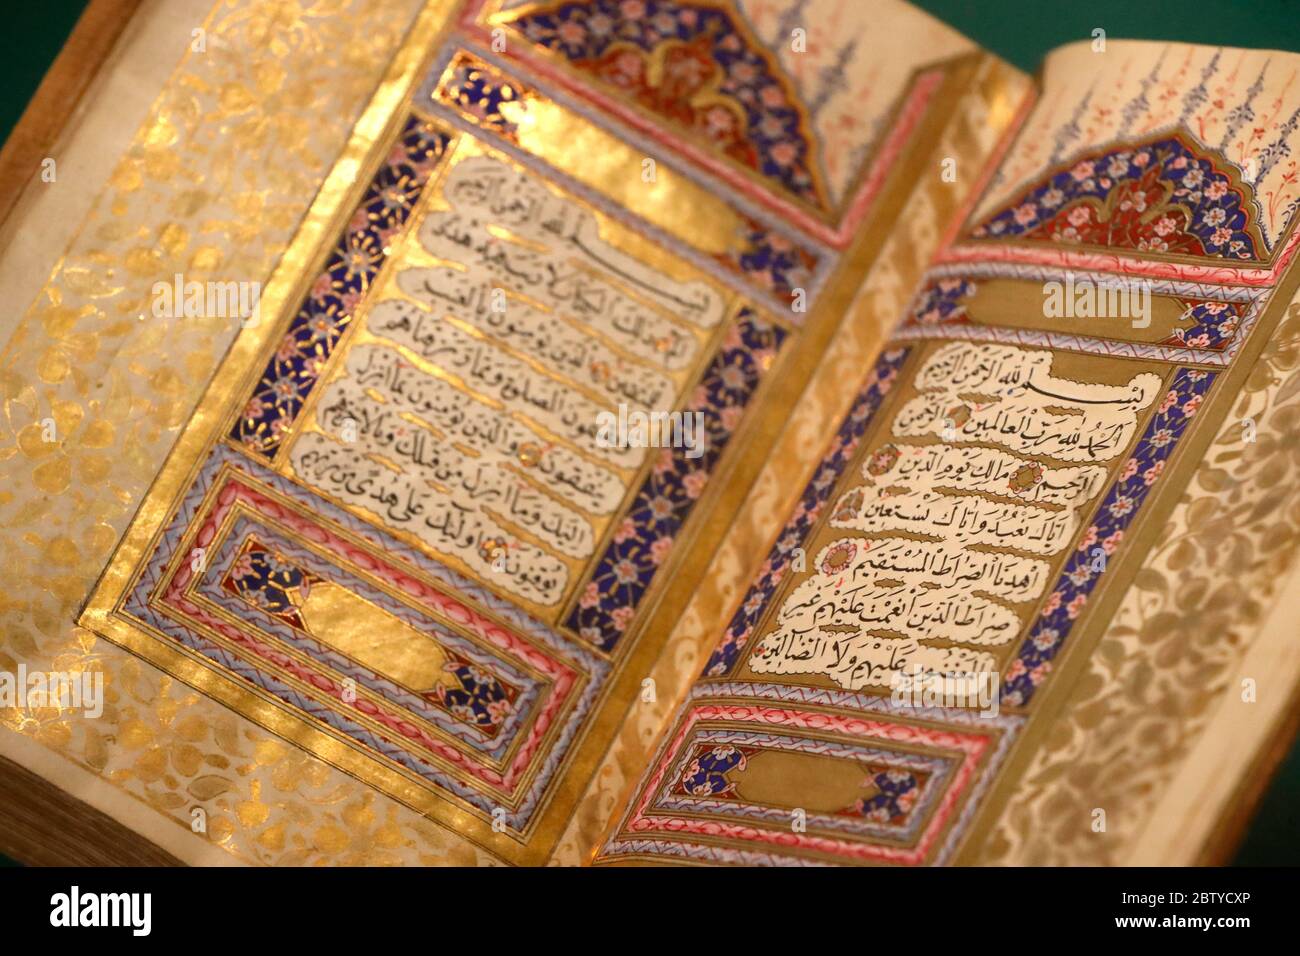 بسم الله الرحمن الرحيم
الحمد لله رب العالمين الرحمن
الرحيم مالك يوم الدين
اياك نعبد واياك نستعين
اهدنا الصراط المستقيم
صراط الذين انعمت عليهم غير
المغضوب عليهم ولا الضالين
بسم الله الرحمن الرحيم
الم ذلك الكتاب لا ريب فيه هدى
للمتقين الذين يؤمنون بالغيب
ويقيمون الصلوة ومما رزقناهم
ينفقون والذين يؤمنون بما انزل
اليك وما انزل من قبلك وبالاخرة هم
يوقنون اولئك على هدى من ربهم
alamy
alamy
Image ID: 2BTYCXP
www.alamy.com